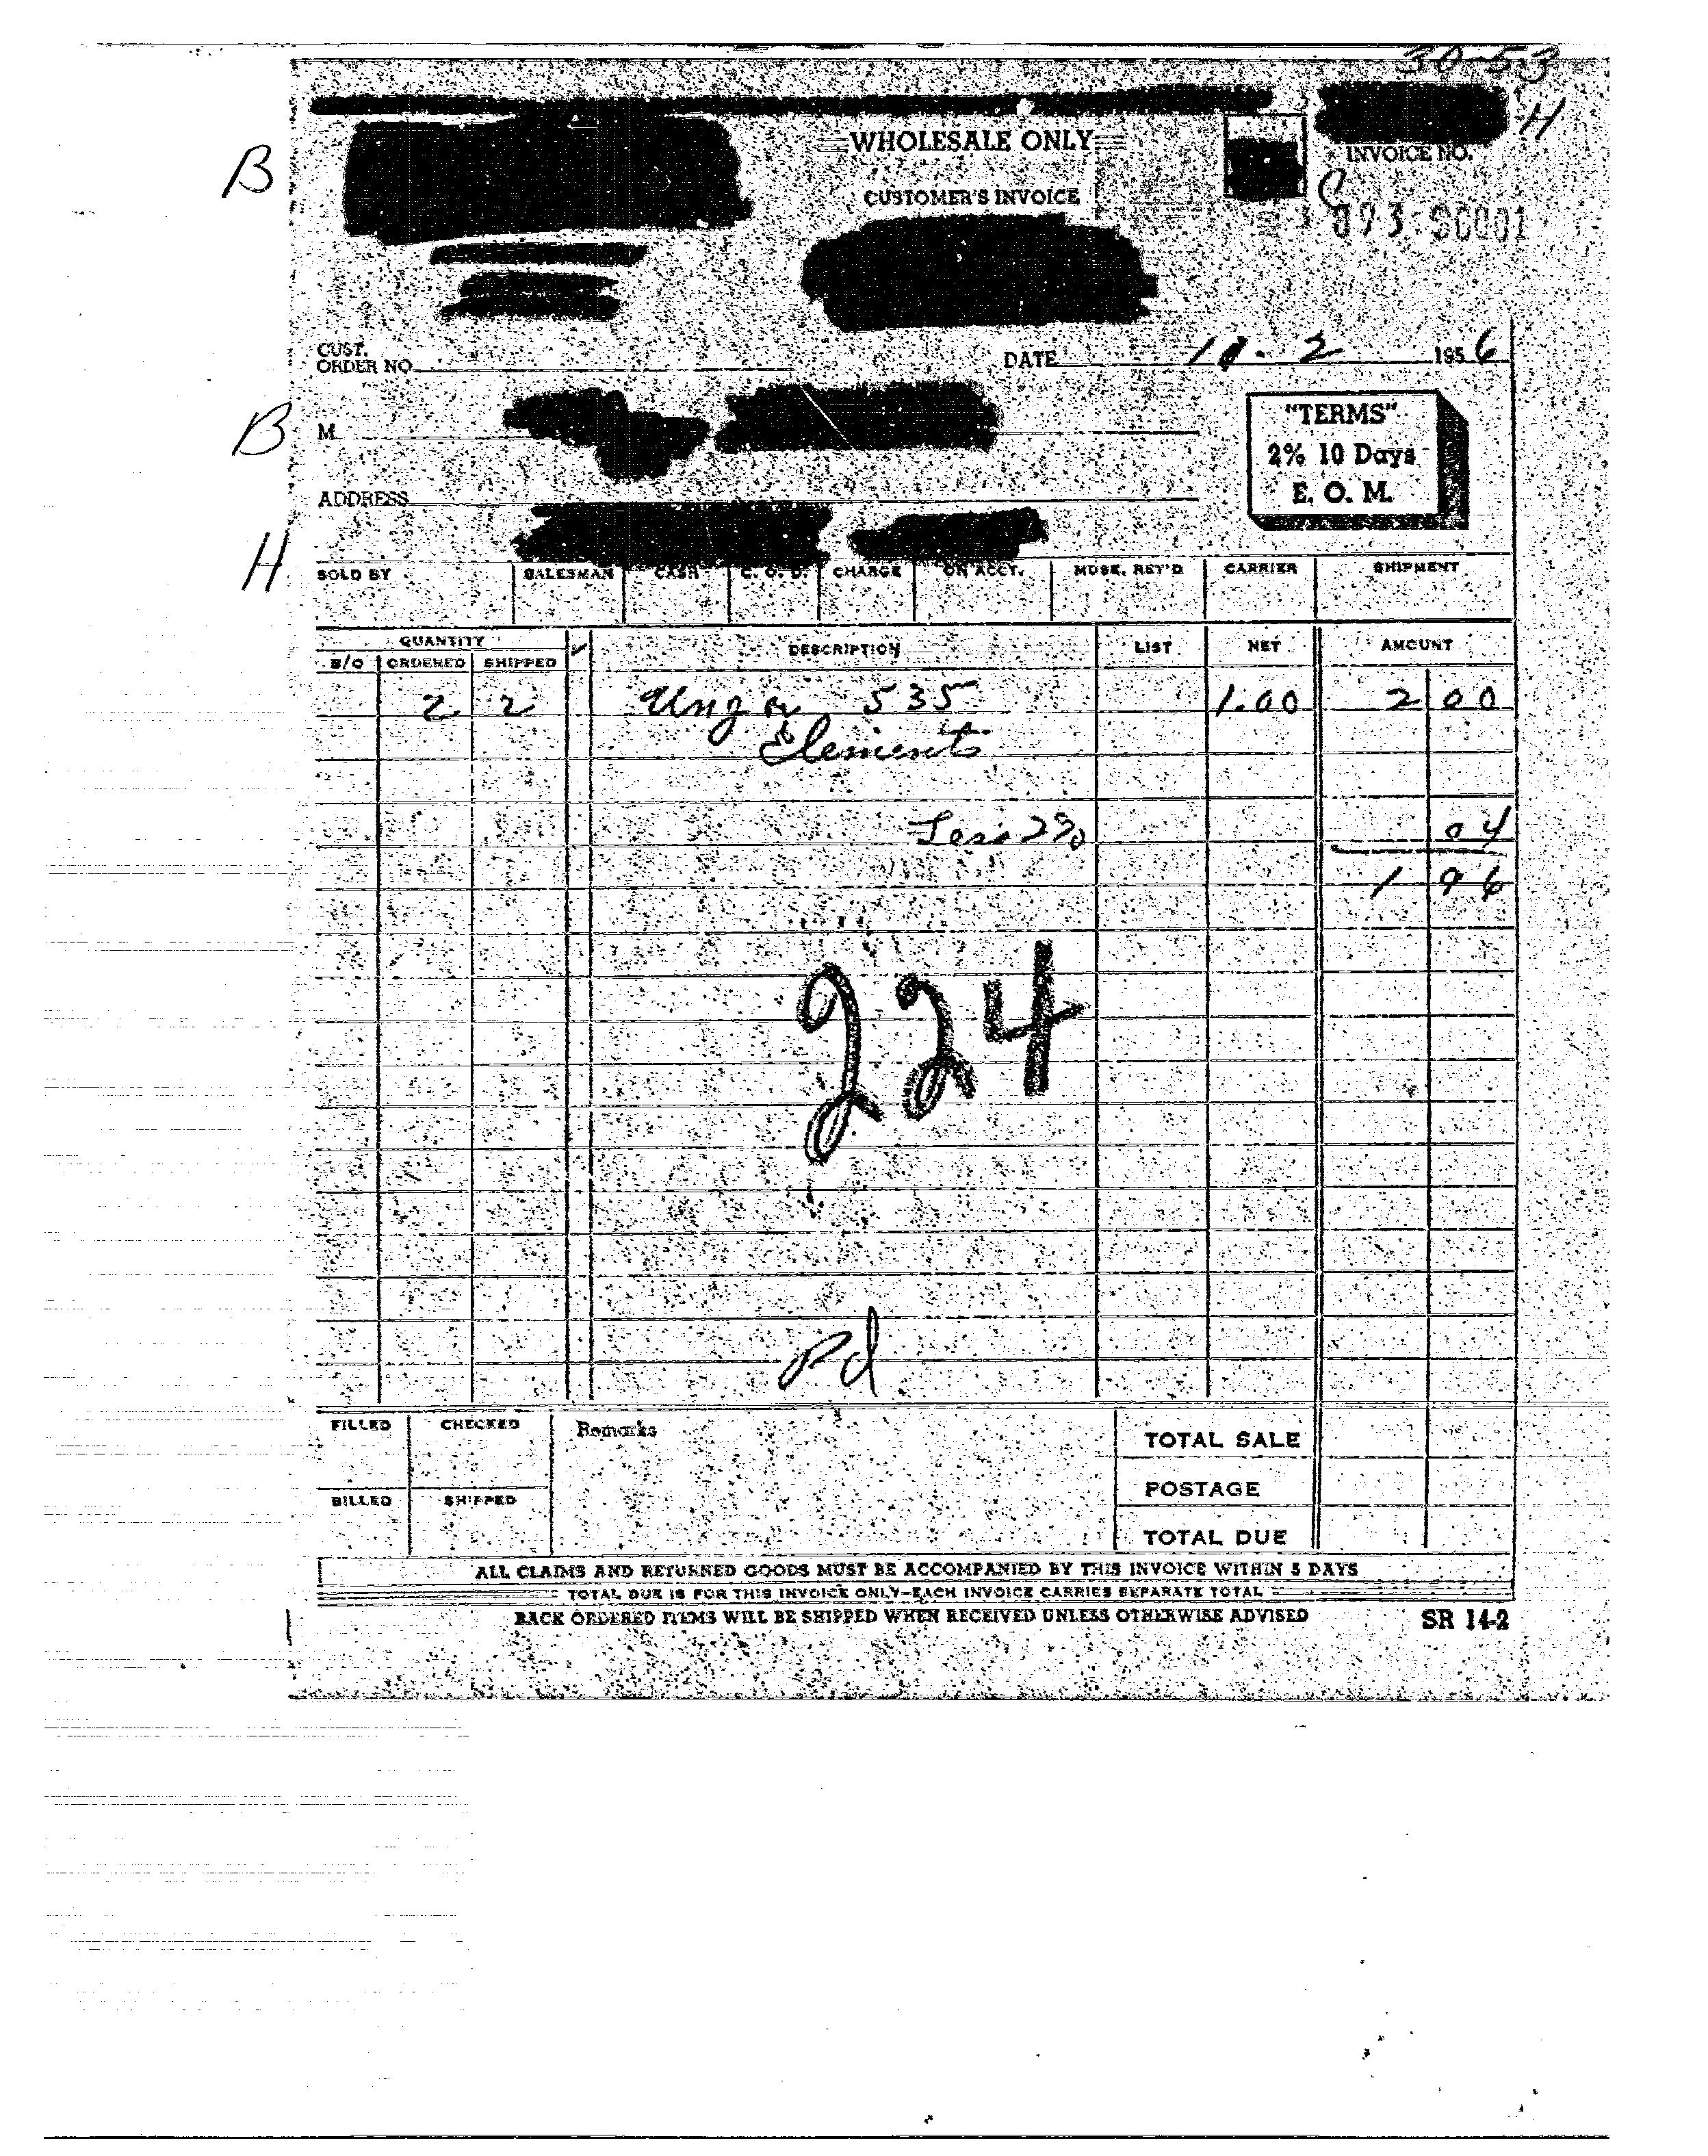 30-53
H
B
WHOLESALE ONLY
INVOICE NO.
CUSTOMER'S INVOICE
C
CUST.
ORDER NO.
DATE 10-2 1956
B
M
"TERMS"
2% 10 Days
E. O. M.
ADDRESS
H
SOLD BY SALESMAN CASH C. O. D. CHARGE ON ACCT. MDSE. RET'D CARRIER SHIPMENT
QUANTITY ✓ DESCRIPTION LIST NET AMOUNT
B/O ORDERED SHIPPED
2 2 Ungar 535 1.00 2 00
Elements
Less 2% 04
1 96
224
Pd
FILLED CHECKED Remarks
TOTAL SALE
POSTAGE
BILLED SHIPPED
TOTAL DUE
ALL CLAIMS AND RETURNED GOODS MUST BE ACCOMPANIED BY THIS INVOICE WITHIN 5 DAYS
TOTAL DUE IS FOR THIS INVOICE ONLY—EACH INVOICE CARRIES SEPARATE TOTAL
BACK ORDERED ITEMS WILL BE SHIPPED WHEN RECEIVED UNLESS OTHERWISE ADVISED SR 14-2